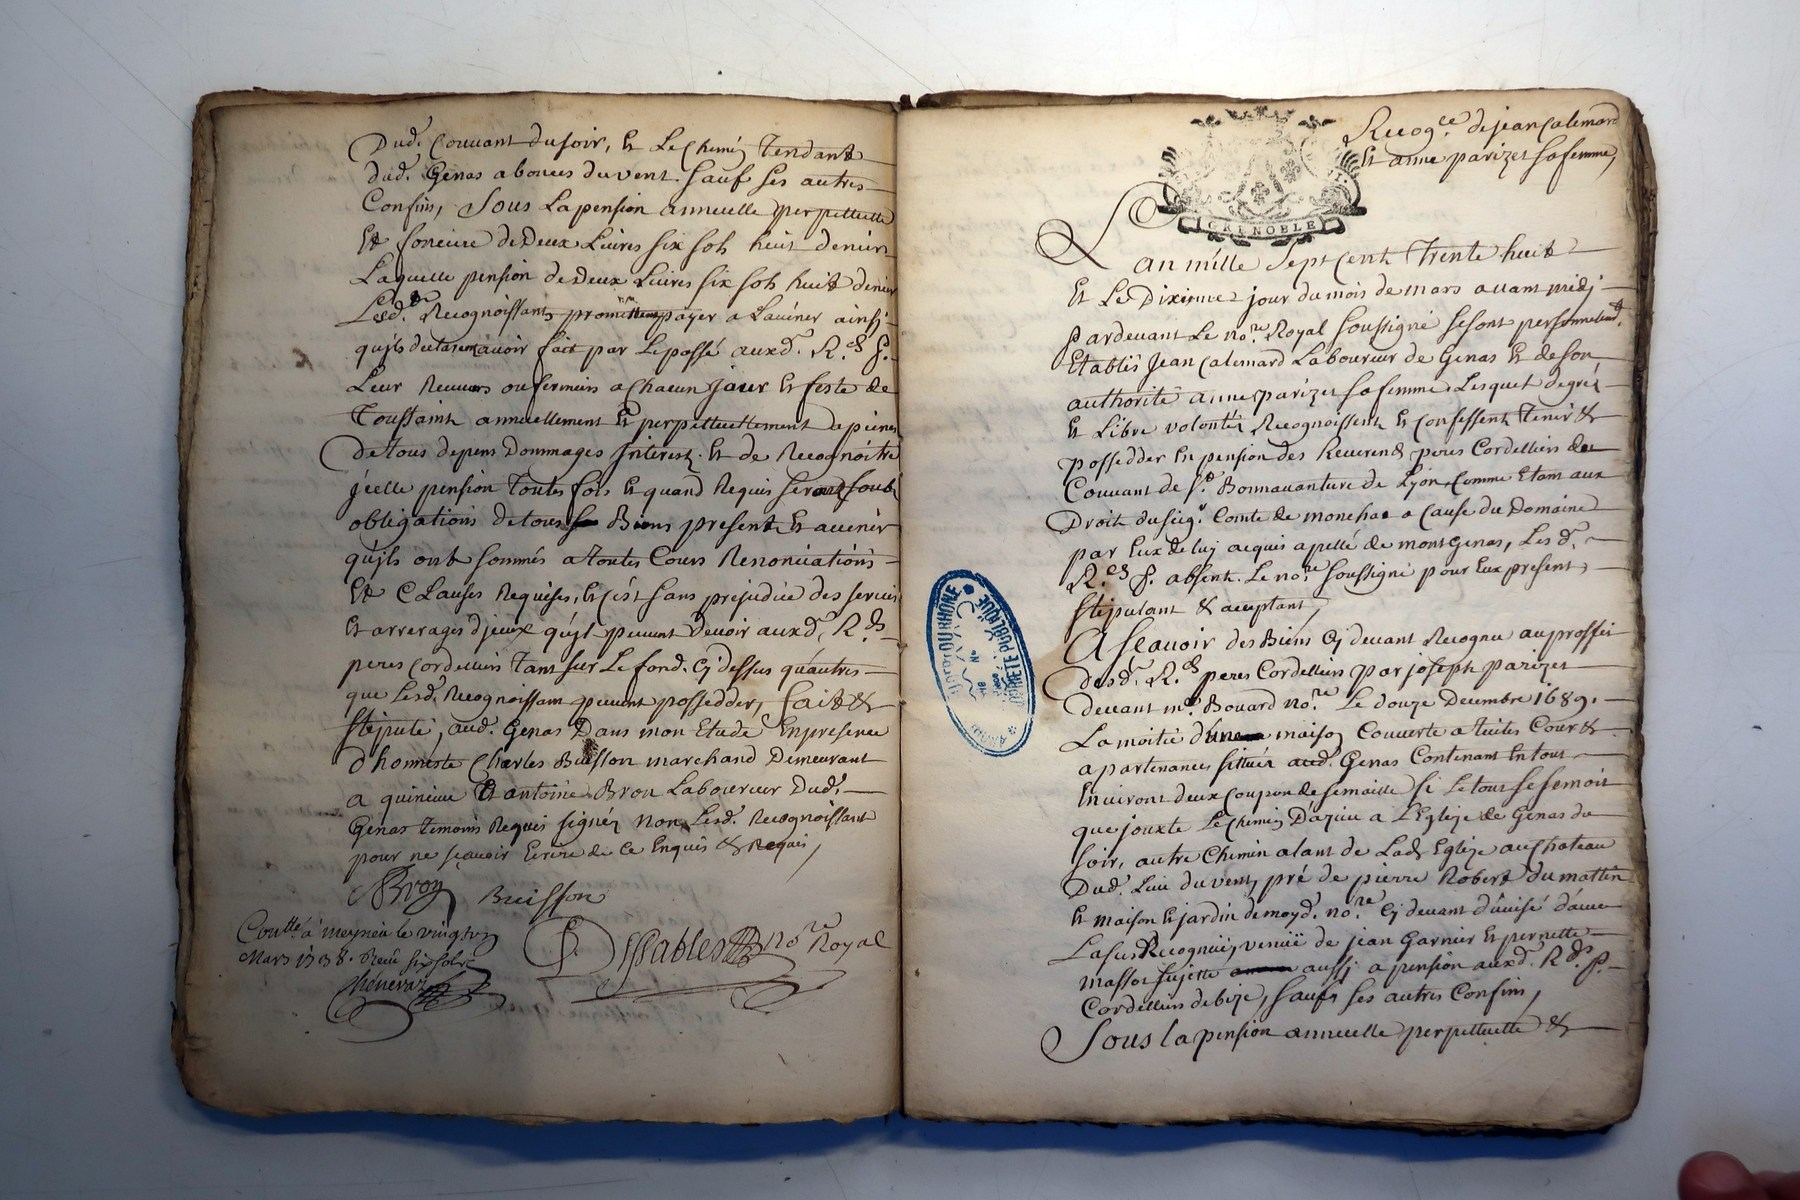 Dud. Couvant du soir, Et Le Chemin Tendant
dud. Genas a bonces du vent. Sauf ses autres
Confins, Sous La pension annuelle perpetuelle
Et fonciere de Deux Livres six sols huit deniers
Laquelle pension de Deux Livres six sols huit deniers
Lesd. Recognoissants promettent payer a Lavenir ainsi
quils declarent avoir fait par Le passé auxd. R.es P.
Leur Receveurs ou fermiers a Chacun jour Et feste de
Toussaint annuellement Et perpetuellement a peines
De tous depens Dommages Interests. Et de Recognoitre
jcelle pension Toutes fois Et quand Requis seront soubs
obligations de tous Biens presents Et avenir
quils onts sommés a toutes Cours Renonciations
Et Clauses Requises, Et c'est sans prejudice des servis
Et arrerages d'jceux quil peuvent devoir auxd. R.ds
peres Cordeliers tant sur Le fond. Cy dessus qu'autres
que Lesd. Recognoissant peuvent possedder, fait &
stipulé, aud. Genas Dans mon Etude En presence
d'honneste Charles Buisson marchand Demeurant
a quincieu Et antoine Bron Laboureur Dud.
Genas temoins Requis signez Non Lesd. Recognoissant
pour ne sçavoir Ecrire de Ce Enquis & Requis,
ABron Buisson
Coullé à meyzieu le vingt
Mars 1738. Receu six sols
Chenevaz
DesSables No.re Royal
Recog.ce de jean Calemard
Et anne parizet sa femme,
GRENOBLE
Lan mille Sept Cents Trente huit
Et Le Dixieme jour du mois de mars avant midj
pardevant Le no.re Royal soussigné se sont personnellemt.
Etablis Jean Calemard Laboureur de Genas Et de son
authorité anne parizet sa femme Lesquel de gréz
Et Libre volontéz Recognoissent Et Confessent tenir &
possedder En pension des Reverends peres Cordelliers de
Couvant de St. Bonnavanture de Lyon, Comme Etant aux
Droits du Seigr. Comte de monchat a Cause du Domaine
par Eux de luy acquis apellé de montgenas, Les d.
R.es P. absents. Le no.re soussigné pour Eux present,
stipulant & aceptant,
A Scavoir des Biens Cy devant Recognu au proffit
desd. R.ds peres Cordelliers par joseph parizet
devant me. Bouard no.re Le douze Decembre 1689.
La moitié d'une maison Couverte a tuiles Cour &
apartenances sittuéz aud. Genas Contenant En tout
Environt deux Coupon de semaille si Le tout se semoit
que jouxte Le Chemin D'azieu a L'Eglize de Genas du
soir, autre Chemin alant de Lad. Eglize au Chateau
Dud. Lieu du vent, pré de pierre Robert du mattin
Et maison Et jardin de moyd. no.re Cy devant divisé d'avec
La sus Recognuë, venuë de jean Garnier Et pernette
massot sujette aussj a pension auxd. R.ds P.
Cordelliers de bize, saufs ses autres Confins,
Sous la pension annuelle perpettuelle &